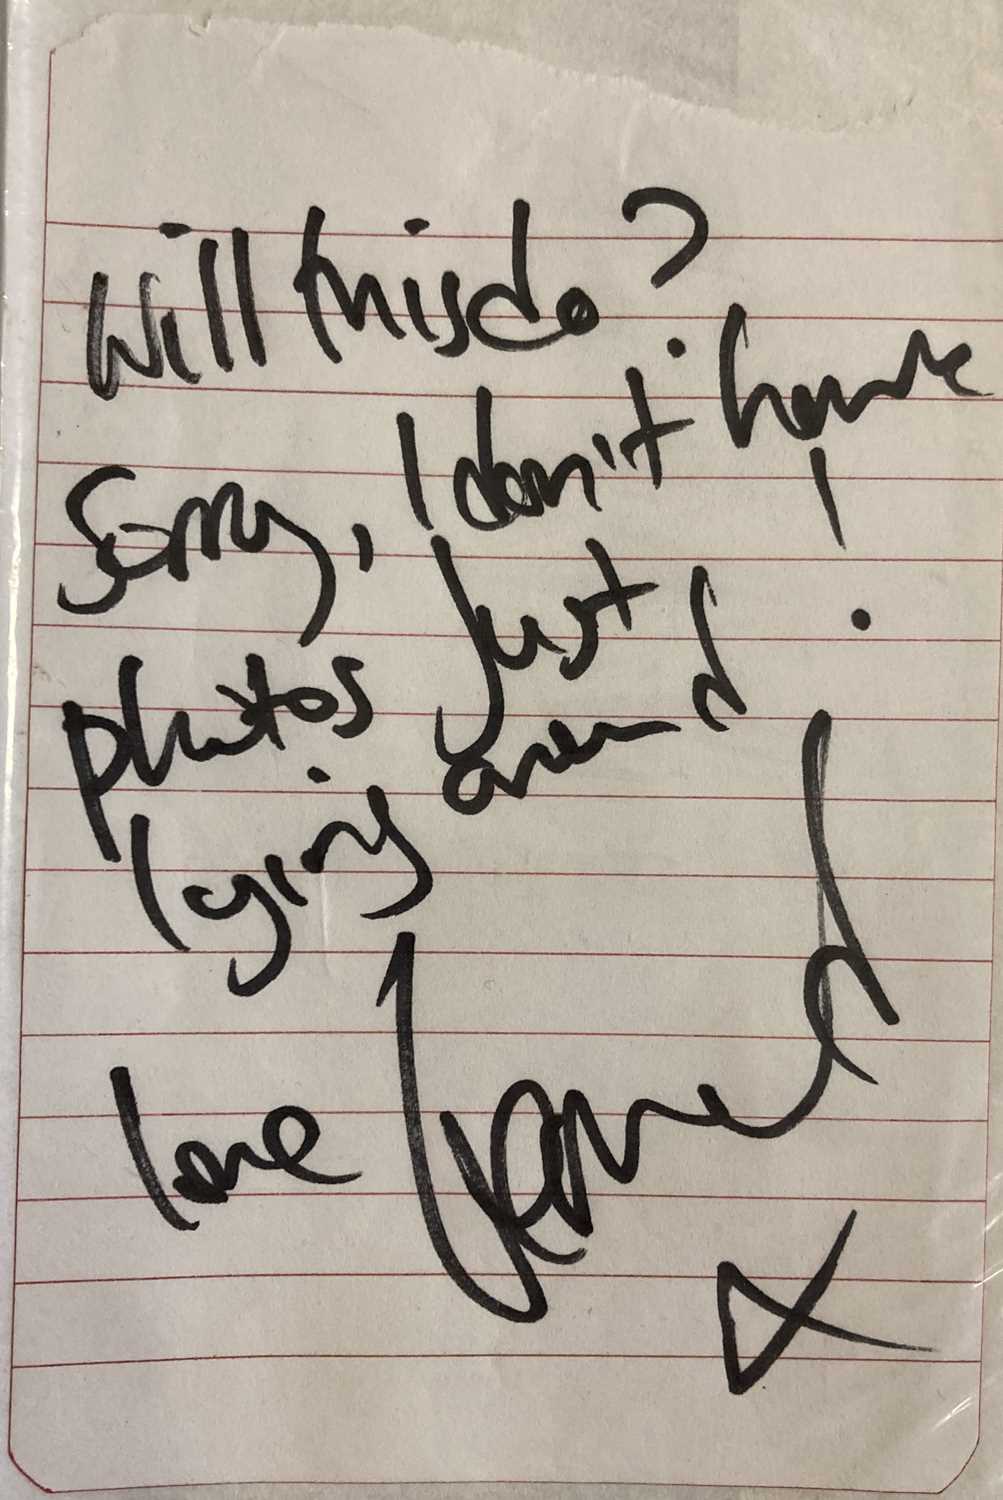 Will this do?
Sorry, I don't have
photos just
lying around!
love
X